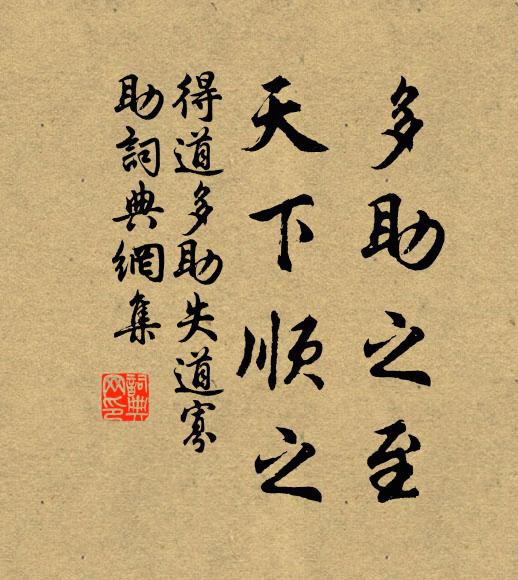 多助之至
天下顺之
得道多助失道寡
助詞典網集
詞典
网印